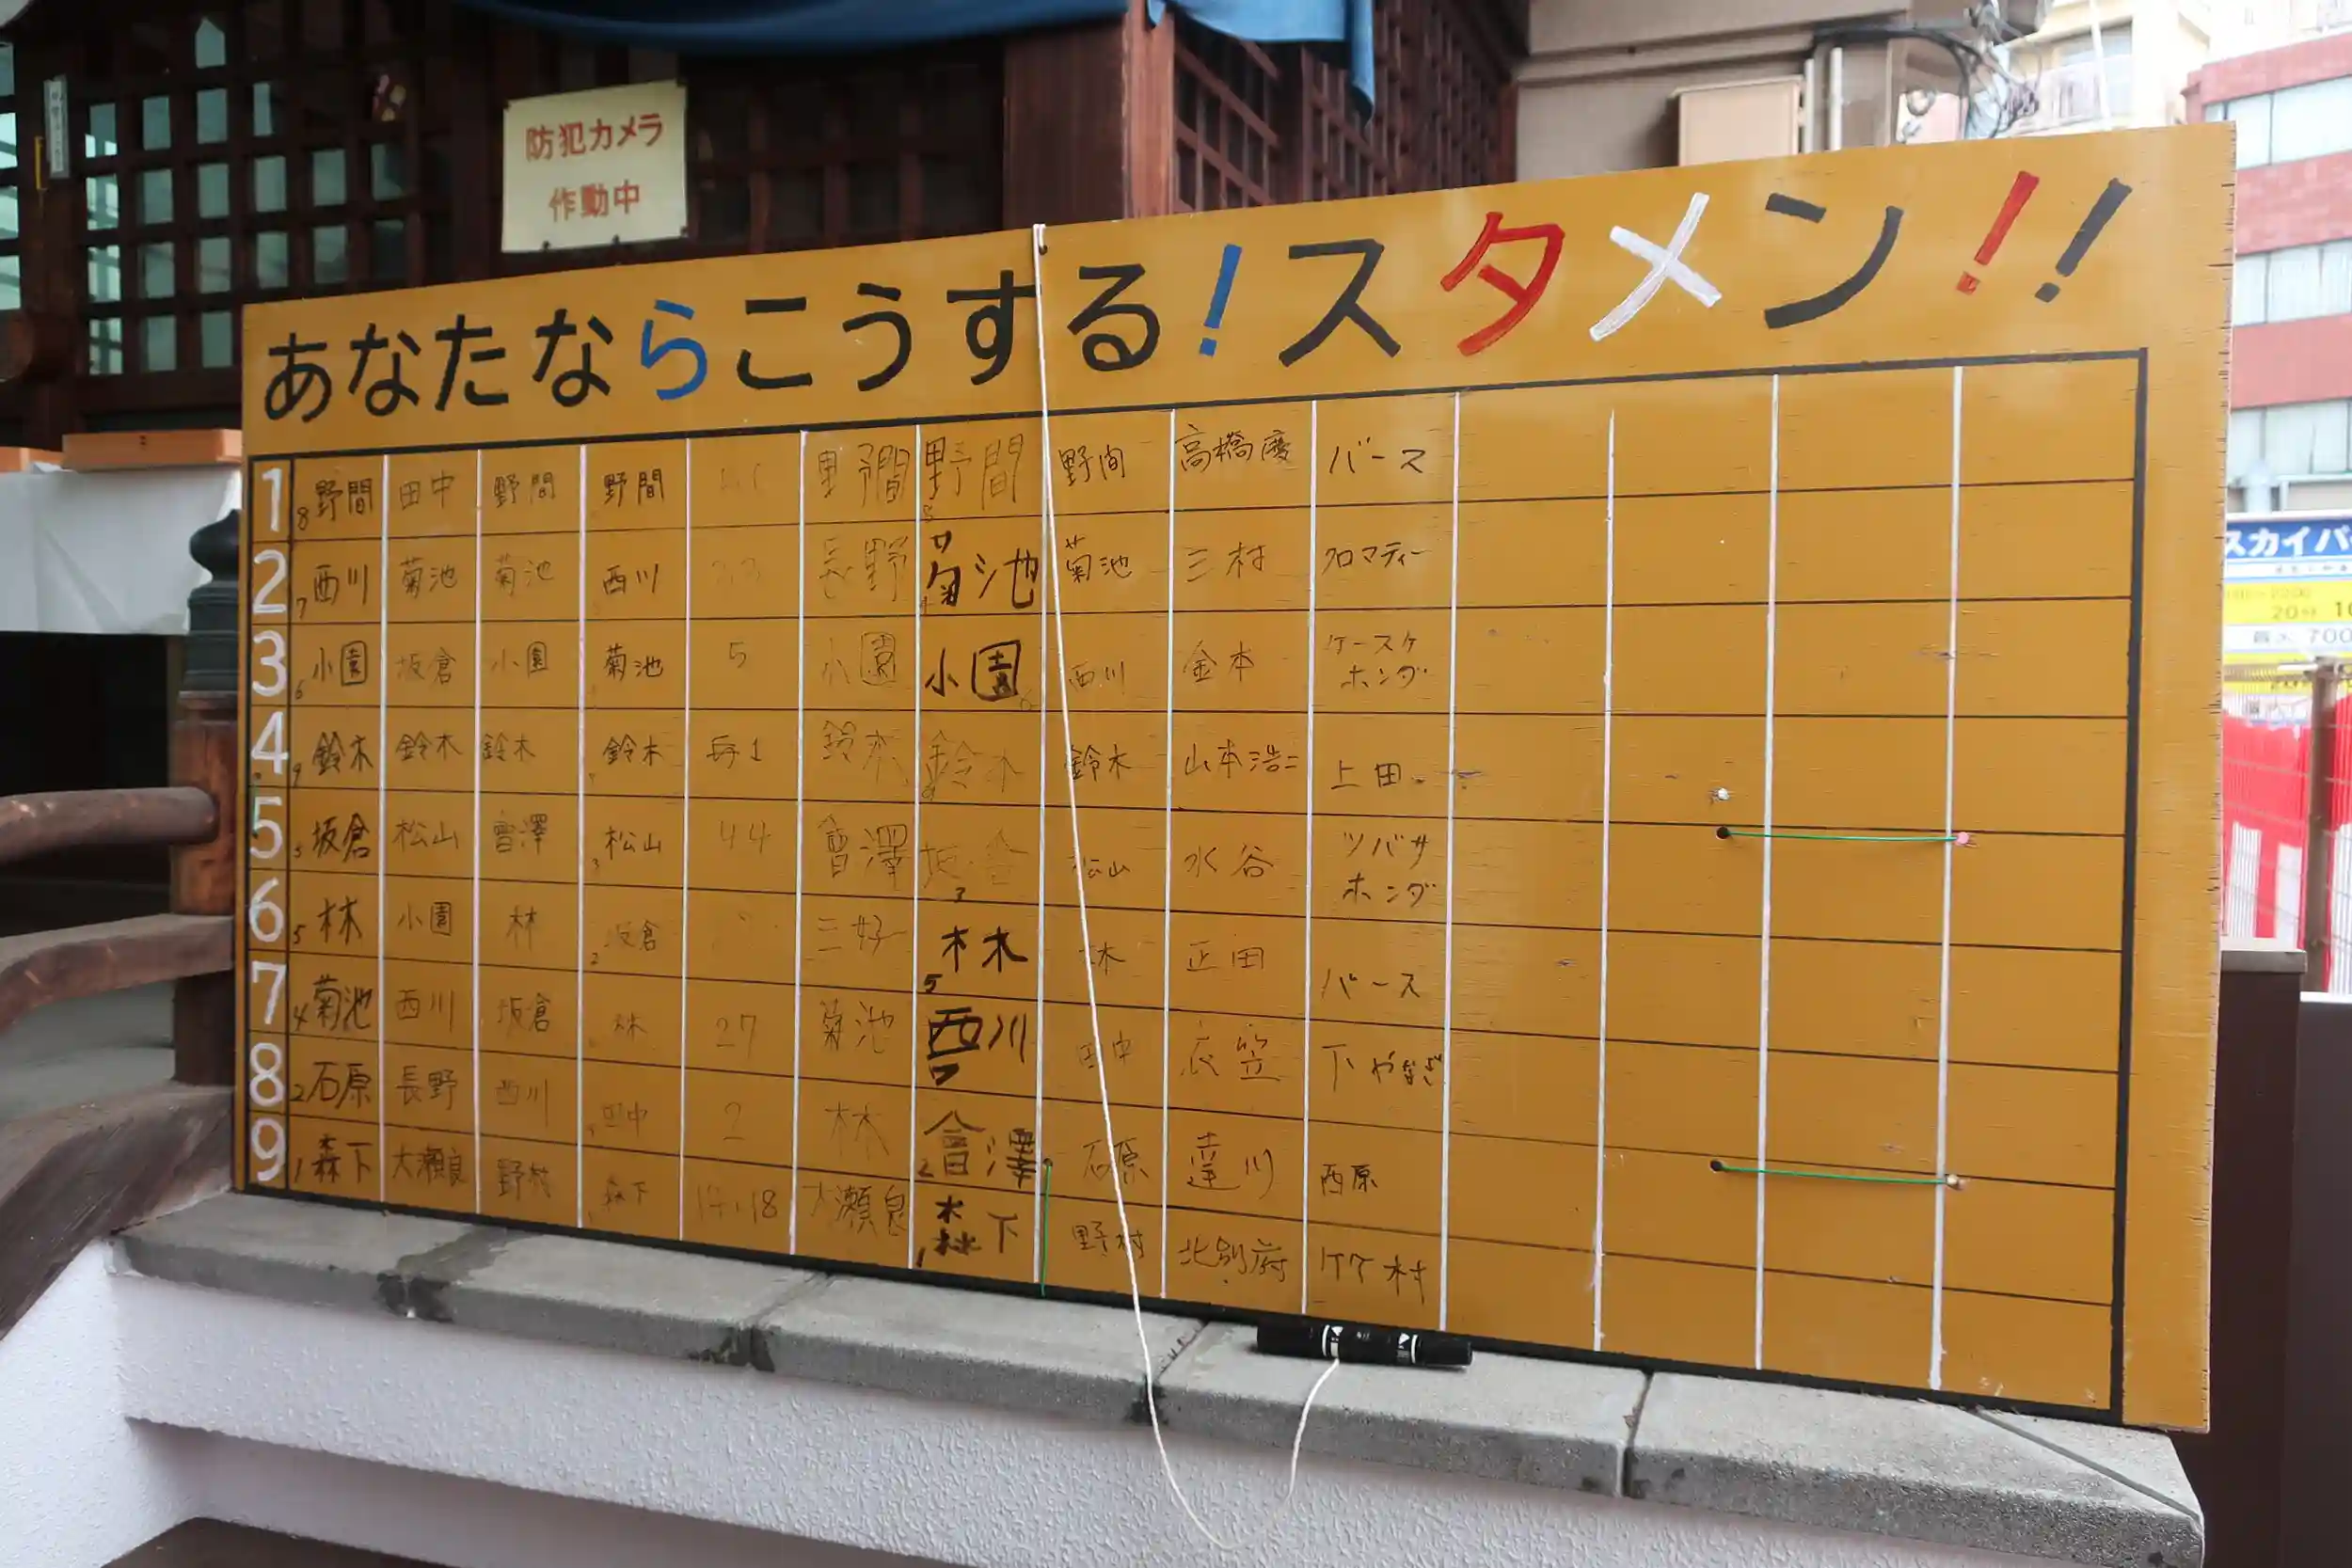 防犯カメラ
作動中
あなたならこうする!スタメン!!
1 8野間 田中 野間 野間 野間 野間 野間 高橋慶 バース
2 7西川 菊池 菊池 西川 33 長野 菊池4 菊池 三村 クロマティー
3 6小園 坂倉 小園 菊池 5 小園 小園6 西川 金本 ケースケホンダ
4 9鈴木 鈴木 鈴木 鈴木 1 鈴木 鈴木 鈴木 山本浩二 上田
5 3坂倉 松山 會澤 3松山 44 會澤 坂倉3 松山 水谷 ツバサホンダ
6 5林 小園 林 2坂倉 三好 林5 林 正田 バース
7 4菊池 西川 坂倉 林 27 菊池 西川7 田中 衣笠 下やなぎ
8 2石原 長野 西川 田中 2 林 會澤2 石原 達川 西原
9 1森下 大瀬良 野村 森下 18 大瀬良 森下1 野村 北別府 竹村
スカイパ
20分
最大 700